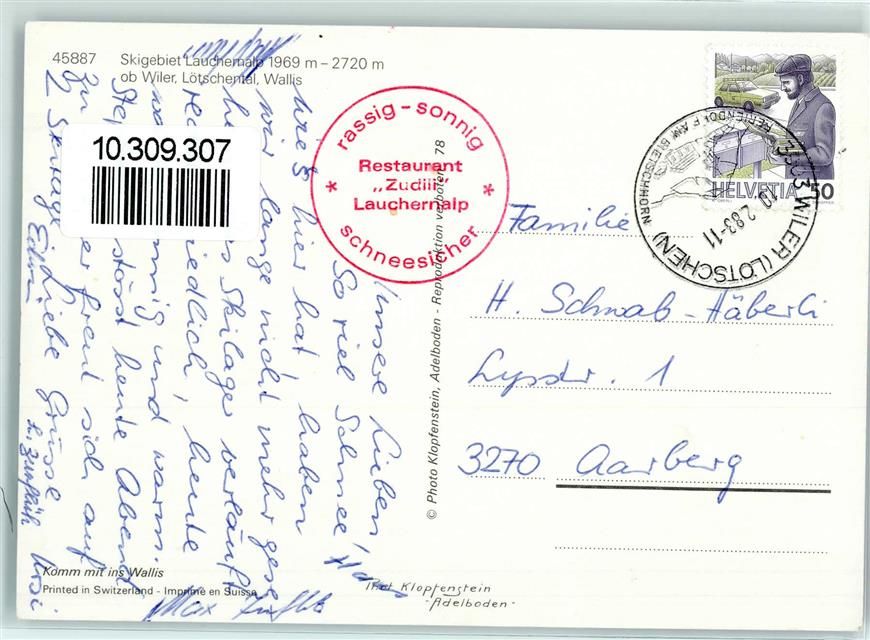 45887 Skigebiet Lauchernalp 1969 m – 2720 m
ob Wiler, Lötschental, Wallis
10.309.307
rassig - sonnig
Restaurant
„Zudili"
Lauchernalp
schneesicher
HELVETIA 50
3903 WILER (LÖTSCHEN)
10.2.83-11
FERIENDORF AM BIETSCHHORN
Familie
H. Schwab-Häberli
Lysstr. 1
3270 Aarberg
Unsere Lieben!
So viel Schnee,
wie's hier hat, haben
wir lange nicht mehr gese
Skilager verläuft
friedlich, heute
und warm.
stösst heute Abend
zu freut sich auf
2 Skitage
Liebe Grüsse
Ursi
Max
© Photo Klopfenstein, Adelboden - Reproduktion verboten 78
Komm mit ins Wallis
Printed in Switzerland - Imprimé en Suisse
Klopfenstein
-Adelboden-